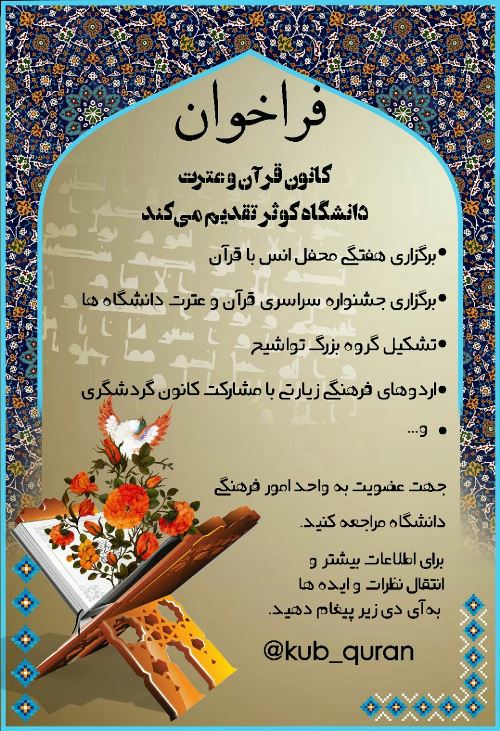 فراخوان
کانون قرآن و عترت
دانشگاه کوثر تقدیم می‌کند
•برگزاری هفتگی محفل انس با قرآن
•برگزاری جشنواره سراسری قرآن و عترت دانشگاه ها
•تشکیل گروه بزرگ تواشیح
•اردوهای فرهنگی زیارتی با مشارکت کانون گردشگری
• و...
جهت عضویت به واحد امور فرهنگی
دانشگاه مراجعه کنید.
برای اطلاعات بیشتر و
انتقال نظرات و ایده ها
به‌آی دی زیر پیغام دهید.
@kub_quran